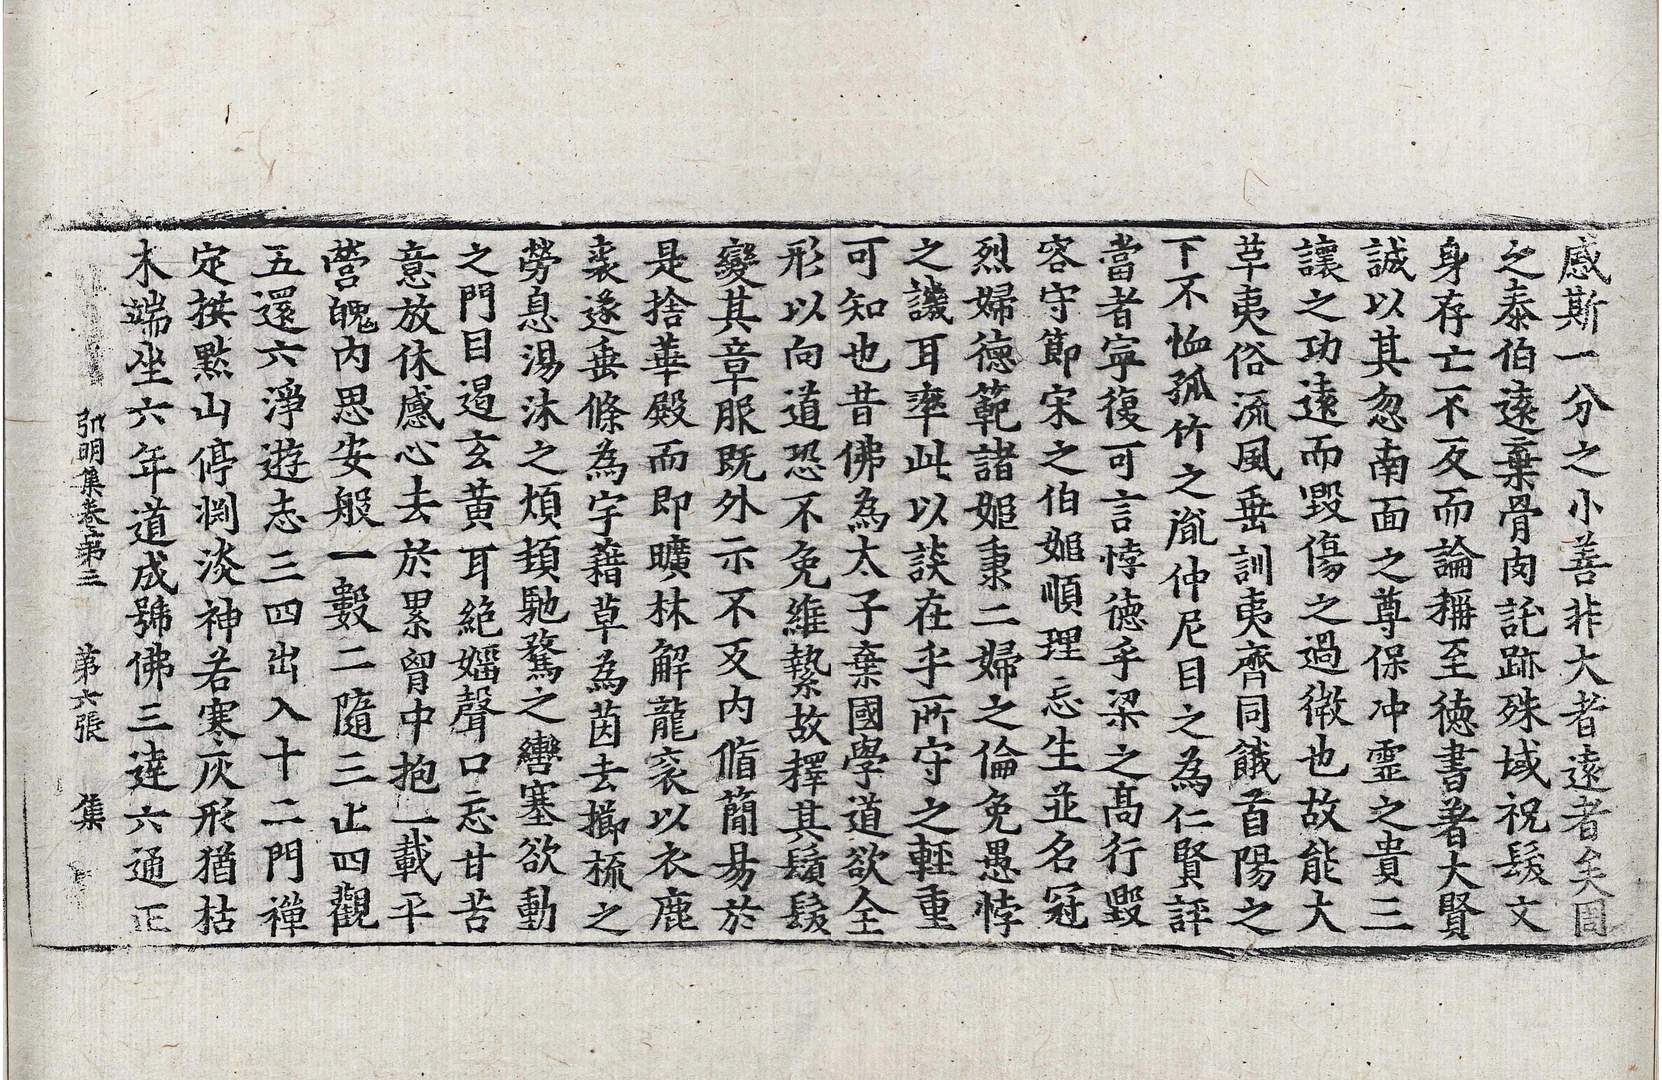 感斯一分之小善非大者遠者矣周
之泰伯遠棄骨肉託跡殊域祝髮文
身存亡不反而論稱至德書著大賢
誠以其忽南面之尊保沖靈之貴三
讓之功遠而毀傷之過微也故能大
革夷俗流風垂訓夷齊同餓首陽之
下不恤孤竹之胤仲尼目之為仁賢評
當者寧復可言悖德乎梁之高行毀
容守節宋之伯姬順理忘生並名冠
烈婦德範諸姬秉二婦之倫免愚悖
之譏耳率此以談在乎所守之輕重
可知也昔佛為太子棄國學道欲全
形以向道恐不免維縶故擇其鬚髮
變其章服既外示不反內脩簡易於
是捨華殿而即曠林解龍衮以衣鹿
裘遂垂條為宇藉草為茵去櫛梳之
勞息湯沐之煩頓馳騖之轡塞欲動
之門目遏玄黃耳絕婬聲口忘甘苦
意放休慼心去於累胷中抱一載平
營魄內思安般一數二隨三止四觀
五還六淨遊志三四出入十二門禪
定拱默山停淵淡神若寒灰形猶枯
木端坐六年道成號佛三達六通正
弘明集卷第三 第六張 集